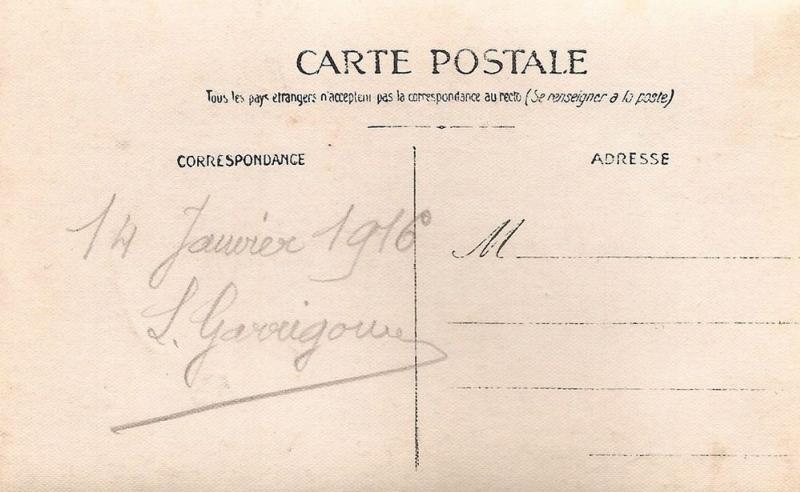 CARTE POSTALE
Tous les pays etrangers n'acceptent pas la correspondance au recto (Se renseigner a la poste)
CORRESPONDANCE
ADRESSE
14 Janvier 1916
M
L.